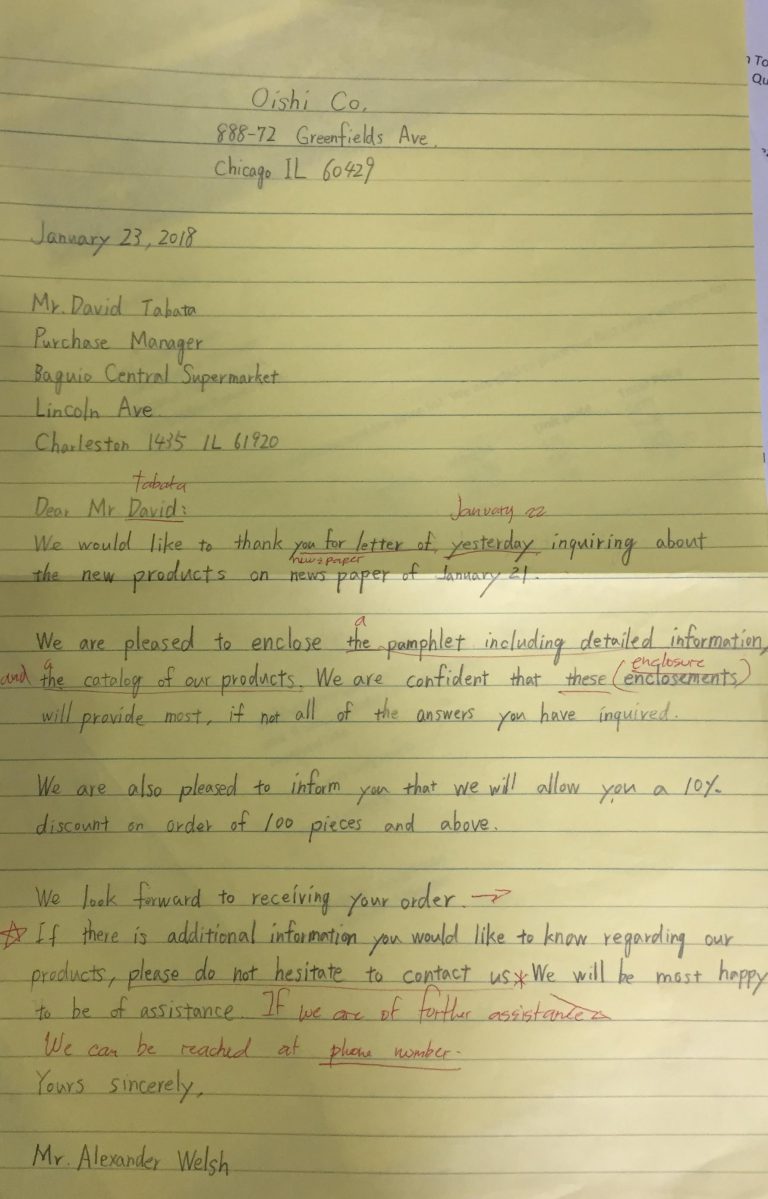 Oishi Co.
888-72 Greenfields Ave.
Chicago IL 60429
January 23, 2018
Mr. David Tabata
Purchase Manager
Baguio Central Supermarket
Lincoln Ave.
Charleston 1435 IL 61920
tabata
Dear Mr David:
January 22
We would like to thank you for letter of yesterday inquiring about
newspaper
the new products on news paper of January 21.
a
We are pleased to enclose the pamphlet including detailed information,
a enclosure
and the catalog of our products. We are confident that these (enclosements)
will provide most, if not all of the answers you have inquired.
We are also pleased to inform you that we will allow you a 10%
discount on order of 100 pieces and above.
We look forward to receiving your order. →
☆ If there is additional information you would like to know regarding our
products, please do not hesitate to contact us * We will be most happy
to be of assistance. If we are of further assistance
We can be reached at phone number.
Yours sincerely,
Mr. Alexander Welsh